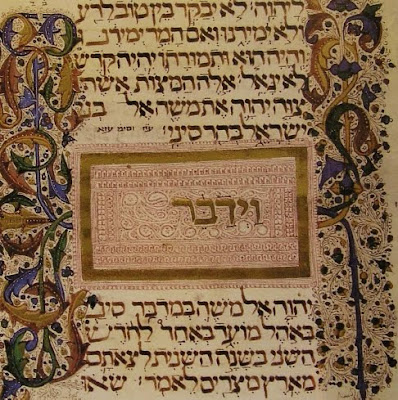 ליהוה לא יבקר בין טוב לרע
לא ימירנו ואם המר ימירנו
והיה הוא ותמורתו יהיה קדש
לא יגאל אלה המצות אשר
צוה יהוה את משה אל בני
ישראל בהר סיני׃
וידבר
יהוה אל משה במדבר סיני
באהל מועד באחד לחדש
השני בשנה השנית לצאתם
מארץ מצרים לאמר׃ שאו